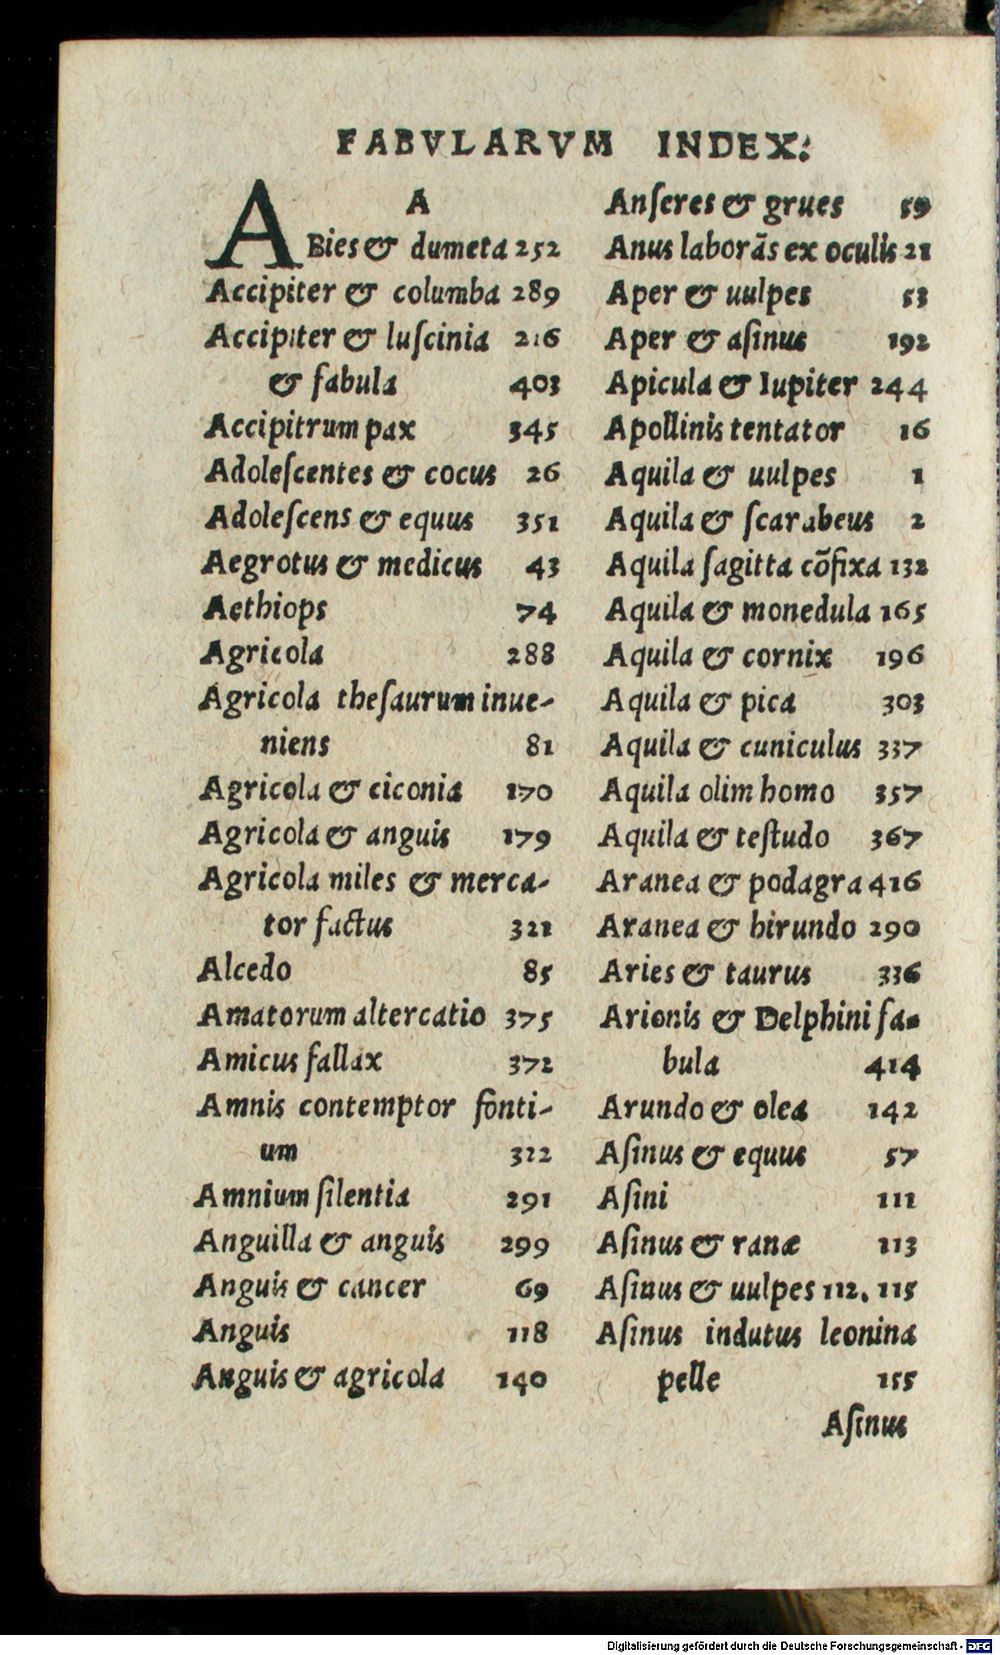 FABVLARVM INDEX.
A
ABies & dumeta 252
Accipiter & columba 289
Accipiter & luſcinia 216
& fabula 403
Accipitrum pax 345
Adoleſcentes & cocus 26
Adoleſcens & equus 351
Aegrotus & medicus 43
Aethiops 74
Agricola 288
Agricola theſaurum inue-
niens 81
Agricola & ciconia 170
Agricola & anguis 179
Agricola miles & merca-
tor factus 321
Alcedo 85
Amatorum altercatio 375
Amicus fallax 372
Amnis contemptor fonti-
um 322
Amnium ſilentia 291
Anguilla & anguis 299
Anguis & cancer 69
Anguis 118
Anguis & agricola 140
Anſeres & grues 59
Anus laborās ex oculis 21
Aper & uulpes 53
Aper & aſinus 192
Apicula & Iupiter 244
Apollinis tentator 16
Aquila & uulpes 1
Aquila & ſcarabeus 2
Aquila ſagitta cõfixa 132
Aquila & monedula 165
Aquila & cornix 196
Aquila & pica 303
Aquila & cuniculus 337
Aquila olim homo 357
Aquila & teſtudo 367
Aranea & podagra 416
Aranea & hirundo 290
Aries & taurus 336
Arionis & Delphini fa-
bula 414
Arundo & olea 142
Aſinus & equus 57
Aſini 111
Aſinus & ranæ 113
Aſinus & uulpes 112. 115
Aſinus indutus leonina
pelle 155
Aſinus
Digitalisierung gefördert durch die Deutsche Forschungsgemeinschaft - DFG